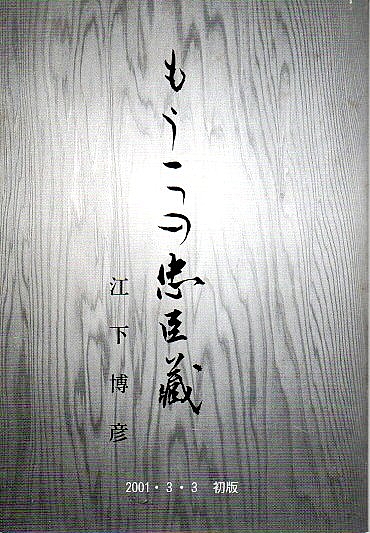 もう一つの忠臣藏
江下博彦
2001・3・3 初版